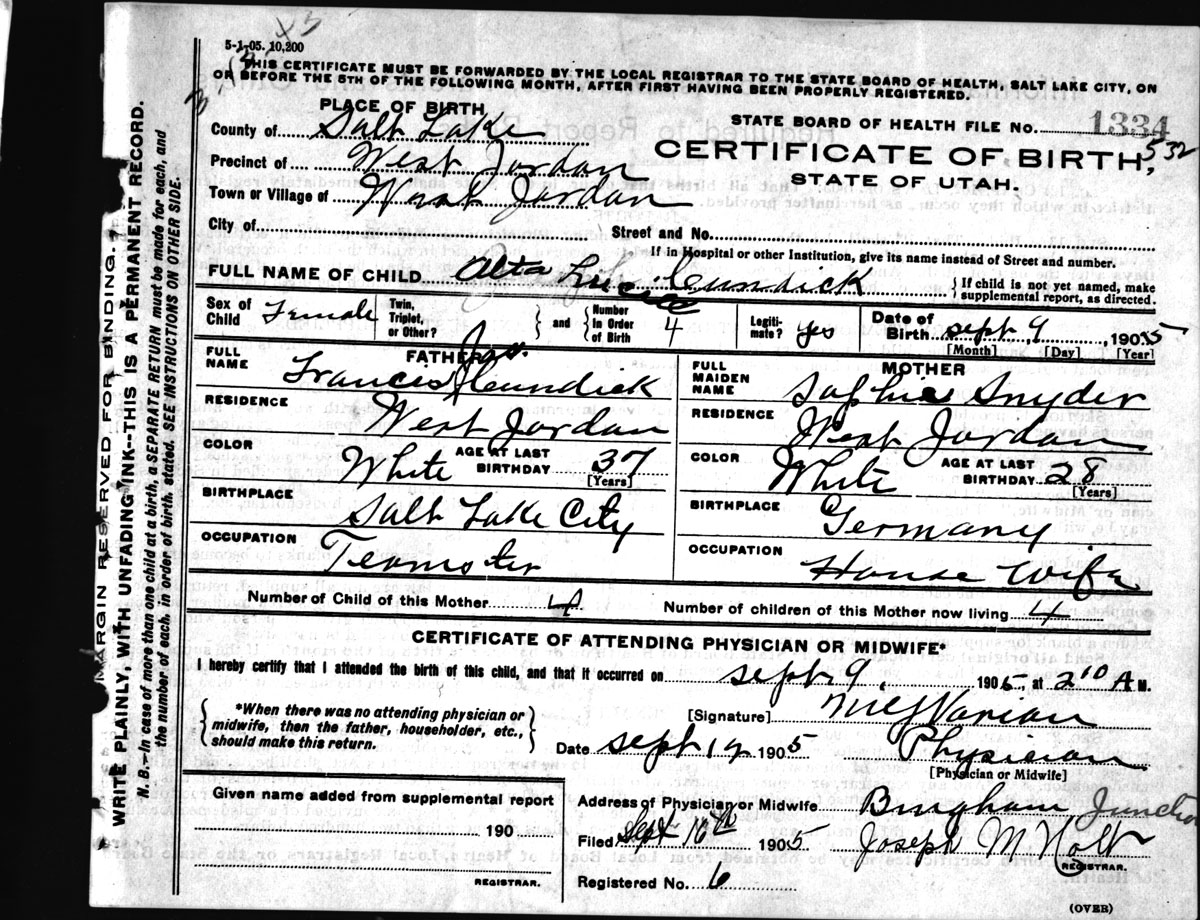 5-1-05. 10,200
THIS CERTIFICATE MUST BE FORWARDED BY THE LOCAL REGISTRAR TO THE STATE BOARD OF HEALTH, SALT LAKE CITY, ON
OR BEFORE THE 5TH OF THE FOLLOWING MONTH, AFTER FIRST HAVING BEEN PROPERLY REGISTERED.
PLACE OF BIRTH
STATE BOARD OF HEALTH FILE NO. 1334
532
County of Salt Lake
CERTIFICATE OF BIRTH,
Precinct of West Jordan
STATE OF UTAH.
Town or Village of West Jordan
City of Street and No.
If in Hospital or other Institution, give its name instead of Street and number.
FULL NAME OF CHILD Alta Lucile Cundick
{ If child is not yet named, make
supplemental report, as directed.
Sex of Child Female
Twin, Triplet, or Other? } and { Number in Order of Birth 4
Legitimate? Yes
Date of Birth Sept 9, 1905
[Month] [Day] [Year]
FATHER
FULL NAME Francis Jas. Cundick
RESIDENCE West Jordan
COLOR White AGE AT LAST BIRTHDAY 37
[Years]
BIRTHPLACE Salt Lake City
OCCUPATION Teamster
MOTHER
FULL MAIDEN NAME Sophie Snyder
RESIDENCE West Jordan
COLOR White AGE AT LAST BIRTHDAY 28
[Years]
BIRTHPLACE Germany
OCCUPATION House Wife
Number of Child of this Mother 4 Number of children of this Mother now living 4
CERTIFICATE OF ATTENDING PHYSICIAN OR MIDWIFE*
I hereby certify that I attended the birth of this child, and that it occurred on Sept 9, 1905, at 2 10 A M.
{ *When there was no attending physician or
midwife, then the father, householder, etc.,
should make this return. }
[Signature] Varian
Date Sept 12 1905 Physician
[Physician or Midwife]
Given name added from supplemental report
190
REGISTRAR.
Address of Physician or Midwife Bingham Junction
Filed Sept 16th 1905 Joseph M Holt
REGISTRAR.
Registered No. 6
(OVER)
MARGIN RESERVED FOR BINDING.
WRITE PLAINLY, WITH UNFADING INK--THIS IS A PERMANENT RECORD.
N. B.—In case of more than one child at a birth, a SEPARATE RETURN must be made for each, and
the number of each, in order of birth, stated. SEE INSTRUCTIONS ON OTHER SIDE.